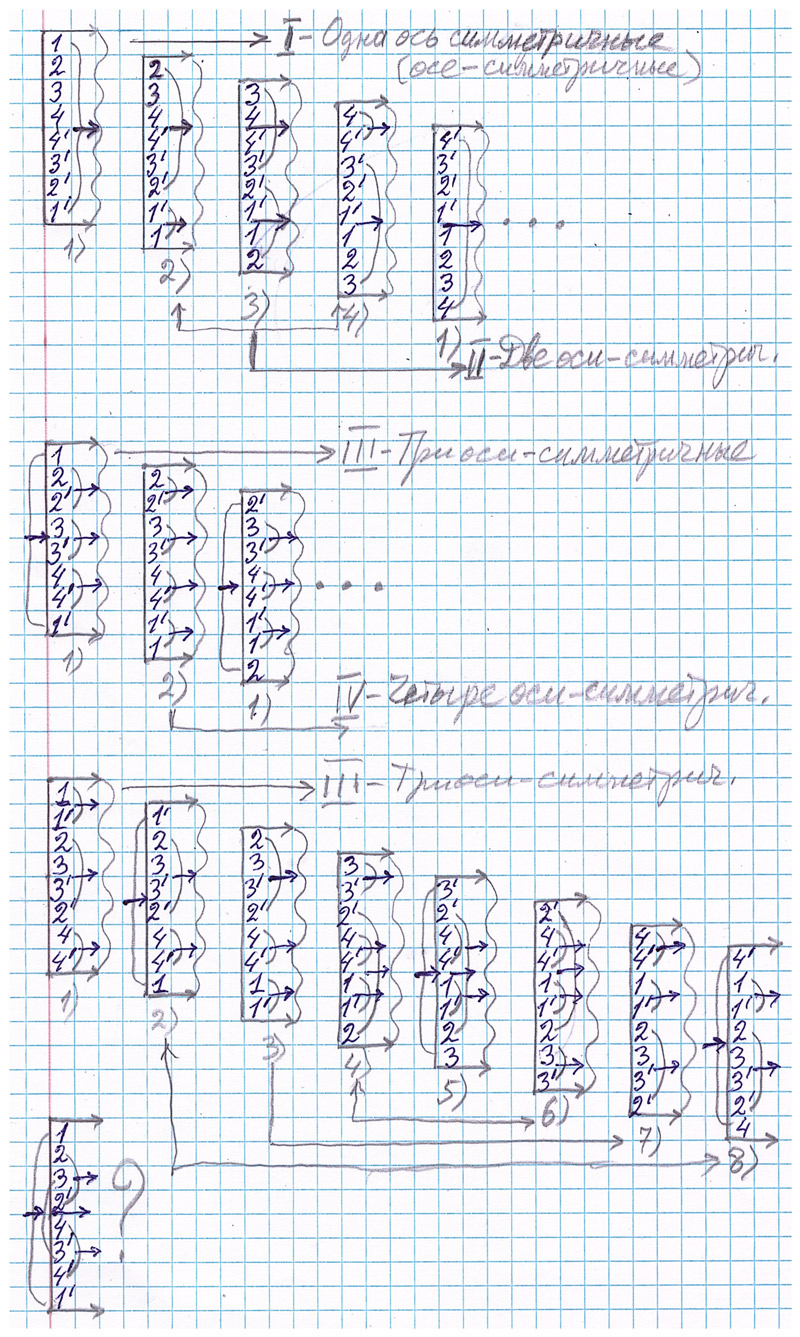 I - Одна ось симметричные
(осе-симметричные)
1 2 3 4 4' 3' 2' 1'
1)
2 3 4 4' 3' 2' 1' 1
2)
3 4 4' 3' 2' 1' 1 2
3)
4 4' 3' 2' 1' 1 2 3
4)
4' 3' 2' 1' 1 2 3 4
1)
...
II - Две оси-симметрич.
III - Три оси-симметричные
1 2 2' 3 3' 4 4' 1'
1)
2 2' 3 3' 4 4' 1' 1
2)
2' 3 3' 4 4' 1' 1 2
1)
...
IV - Четыре оси-симметрич.
III - Три оси-симметрич.
1 1' 2 3 3' 2' 4 4'
1)
1' 2 3 3' 2' 4 4' 1
2)
2 3 3' 2' 4 4' 1 1'
3)
3 3' 2' 4 4' 1 1' 2
4)
3' 2' 4 4' 1 1' 2 3
5)
2' 4 4' 1 1' 2 3 3'
6)
4 4' 1 1' 2 3 3' 2'
7)
4' 1 1' 2 3 3' 2' 4
8)
1 2 3 2' 4 3' 4' 1'
?